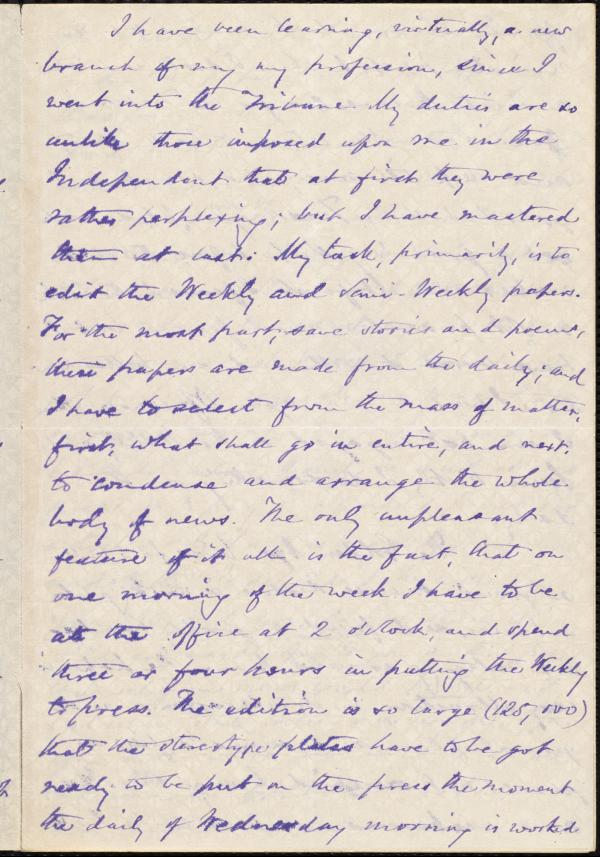 I have been learning, virtually, a new
branch of my my profession, since I
went into the Tribune. My duties are so
unlike those imposed upon me in the
Independent that at first they were
rather perplexing; but I have mastered
them at last. My task, primarily, is to
edit the Weekly and Semi-Weekly papers.
For the most part, save stories and poems,
these papers are made from the daily; and
I have to select from the mass of matter,
first, what shall go in entire, and next,
to condense and arrange the whole
body of news. The only unpleasant
feature of it all is the fact, that on
one morning of the week I have to be
at the office at 2 o'clock, and spend
three or four hours in putting the Weekly
to press. The edition is so large (125,000)
that the stereotype plates have to be got
ready to be put on the press the moment
the daily of Wednesday morning is worked